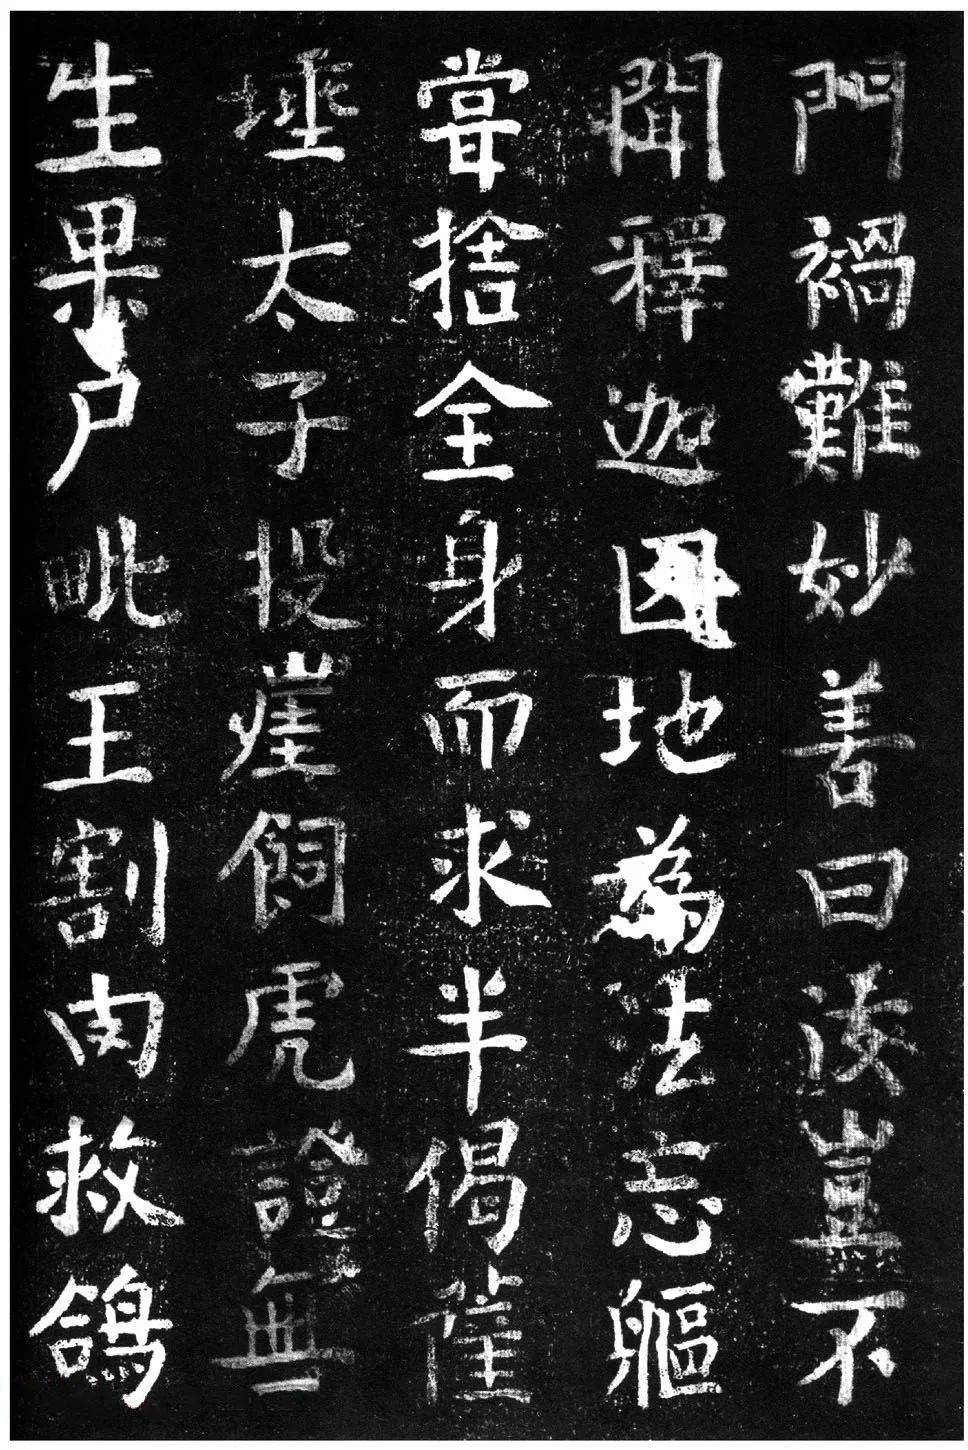 門禍難妙善曰汝豈不
聞釋迦因地為法忘軀
甞捨全身而求半偈薩
埵太子投崖飼虎證無
生果尸毗王割肉救鴿